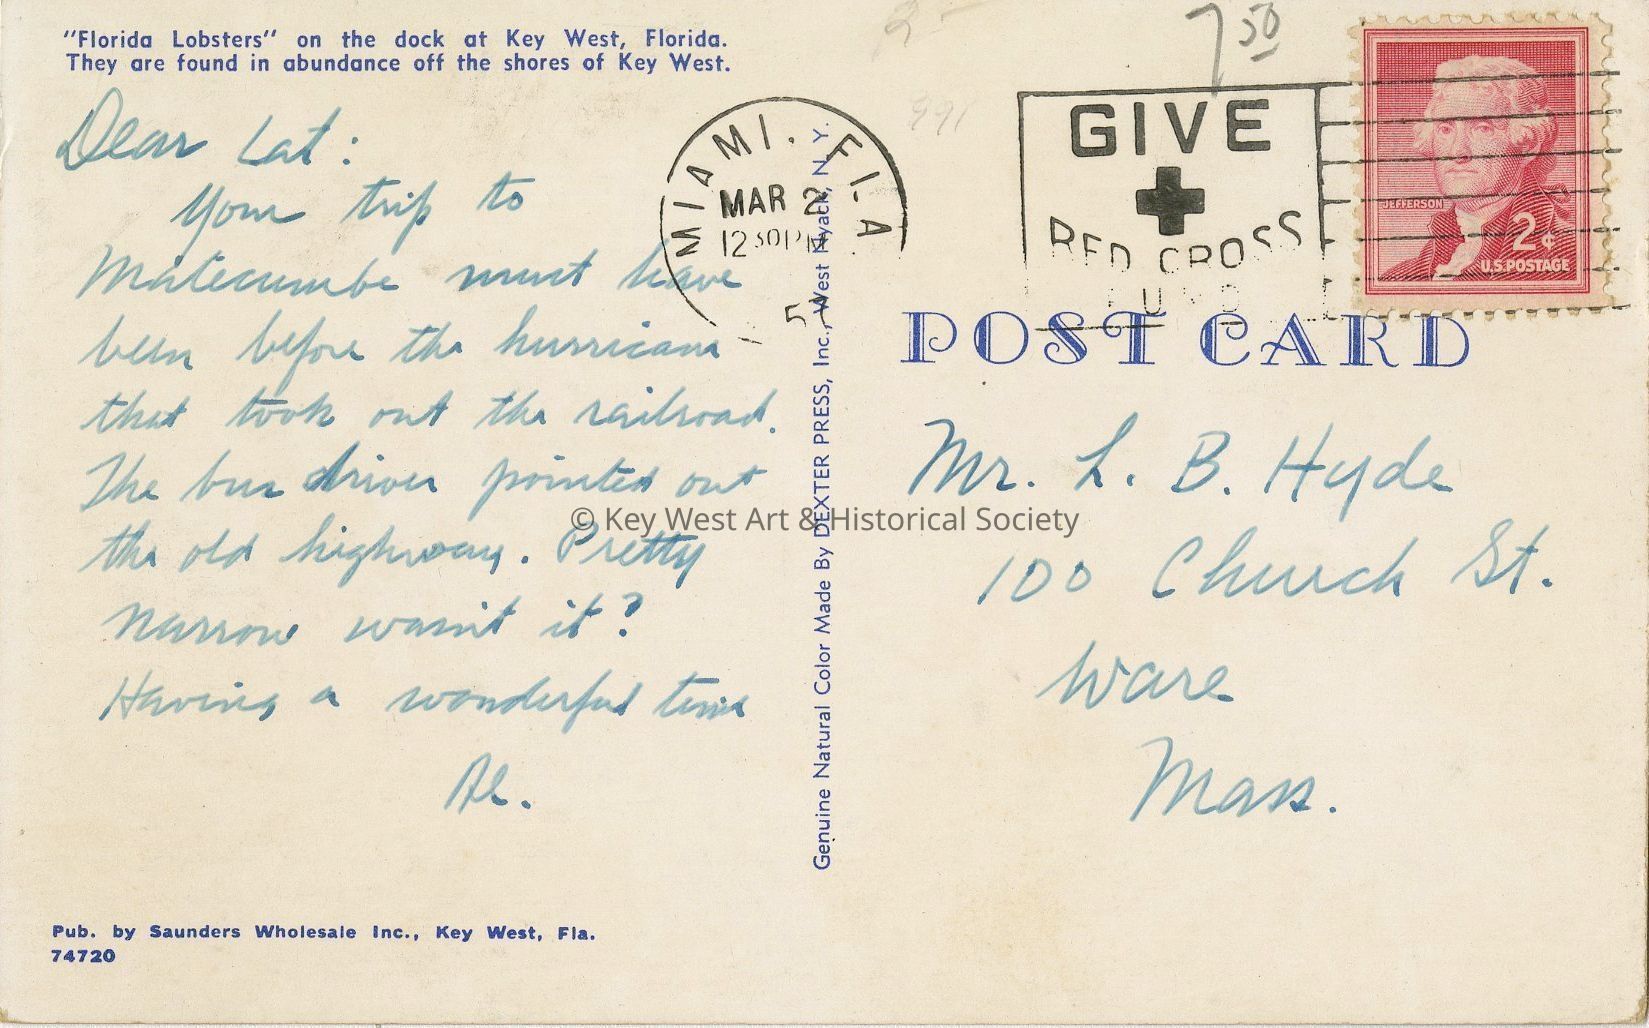 "Florida Lobsters" on the dock at Key West, Florida.
They are found in abundance off the shores of Key West.
Dear Lat:
Your trip to
Matecumbe must have
been before the hurricane
that took out the railroad.
The bus driver pointed out
the old highway. Pretty
narrow wasn't it?
Having a wonderful time
Al.
Pub. by Saunders Wholesale Inc., Key West, Fla.
74720
Genuine Natural Color Made By DEXTER PRESS, Inc., West Nyack, N. Y.
MIAMI. FLA
MAR 2
12 30 PM
GIVE
RED CROSS
FUND
7 50
991
JEFFERSON
2¢
U.S. POSTAGE
POST CARD
Mr. L. B. Hyde
100 Church St.
Ware
Mass.
© Key West Art & Historical Society